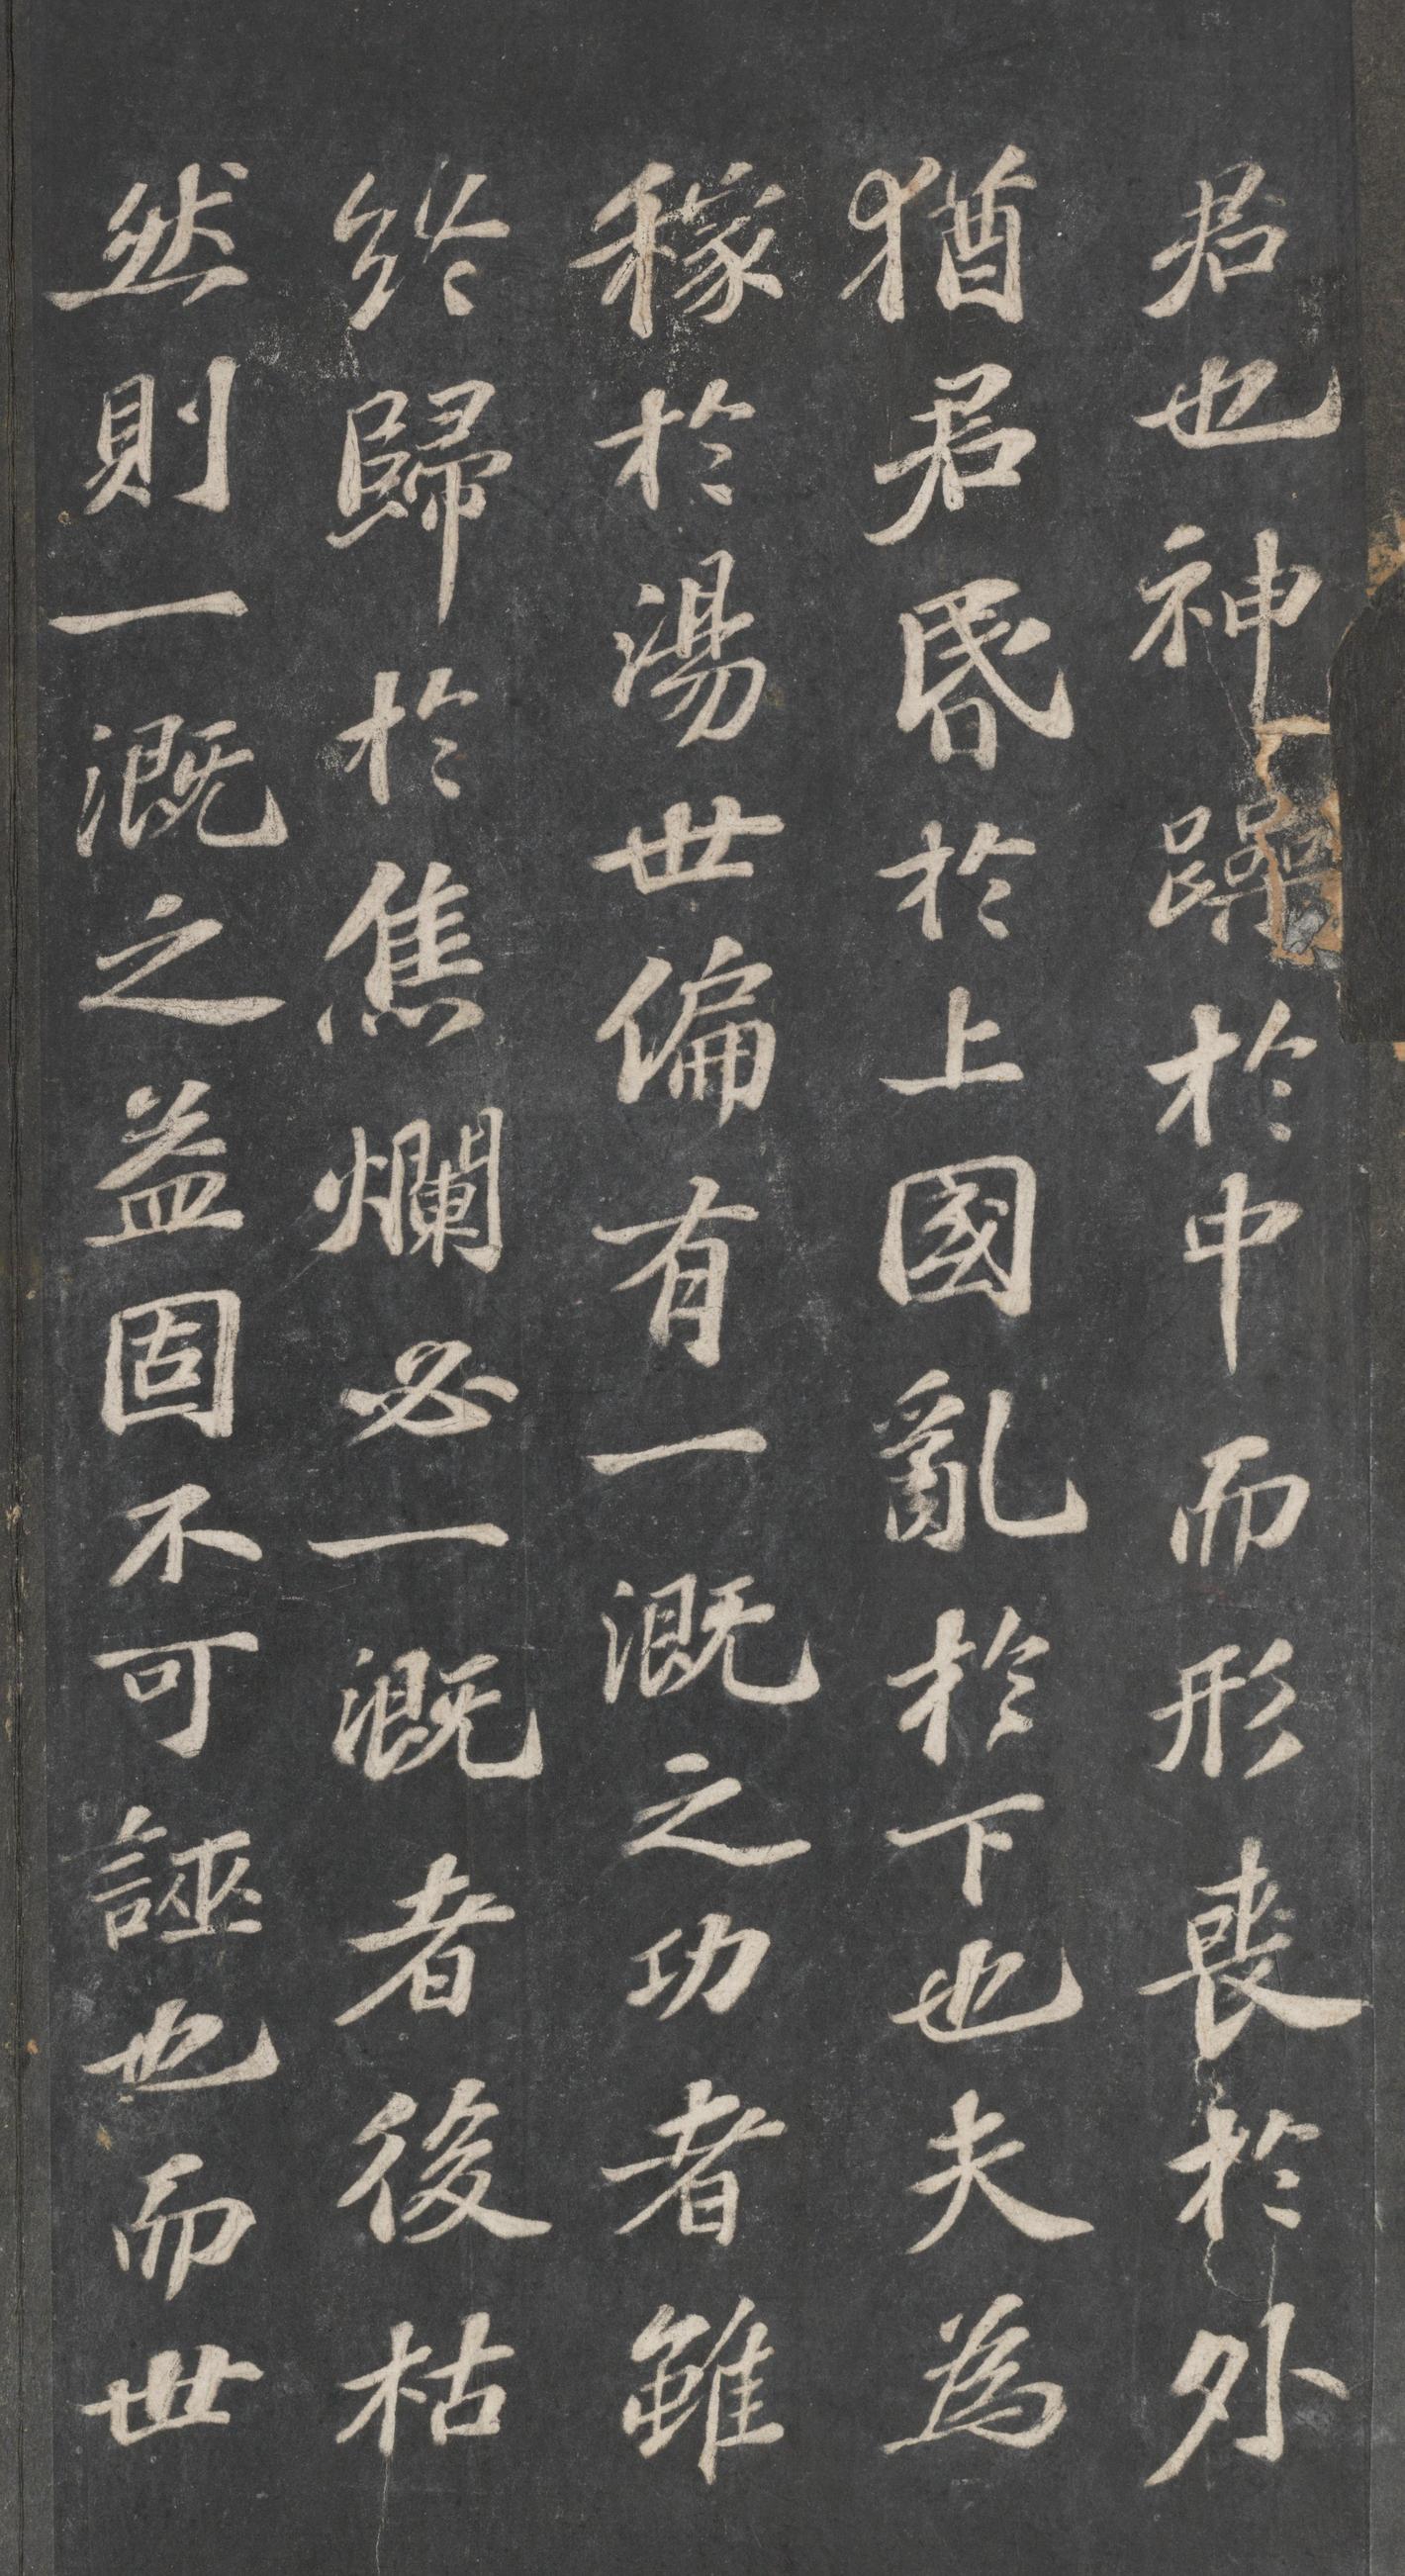 君也神躁於中而形喪於外
猶君昬於上國亂於下也夫為
稼於湯世偏有一溉之功者雖
終歸於焦爛必一溉者後枯
然則一溉之益固不可誣也而世